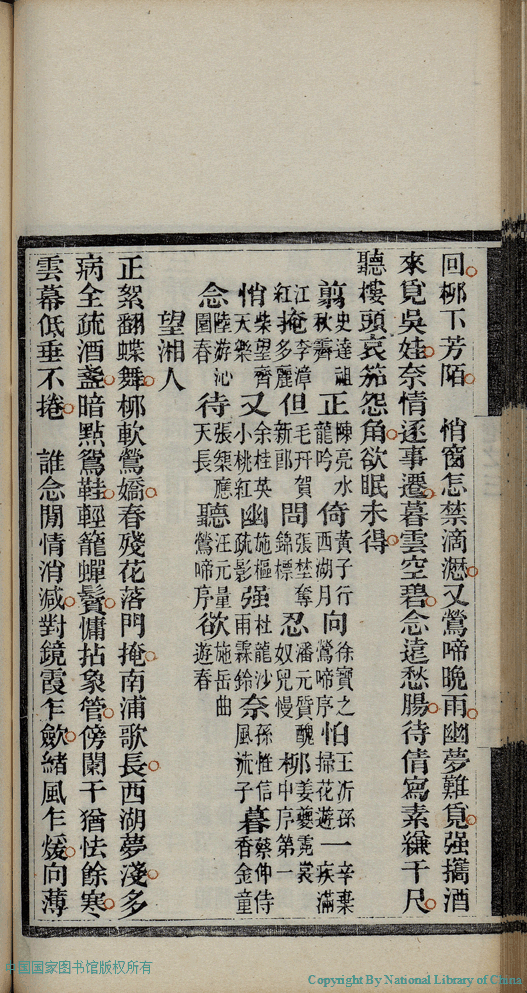 回栁下芳陌　悄窗怎禁滴瀝又鶯啼晩雨幽夢難覓强攜酒
來覓吳娃奈情逐事遷暮雲空碧念遠愁腸待倩寫素縑千尺
聽樓頭哀笳怨角欲眠未得
翦史達祖秋霽正陳亮水龍吟倚黃子行西湖月向徐寶之鶯啼序怕王沂孫掃花遊一辛棄疾滿
江紅掩李漳多麗但毛幵賀新郎問張埜奪錦標忍潘元質醜奴兒慢栁姜夔霓裳中序第一
悄柴望齊天樂又余桂英小桃紅幽施樞疏影强杜龍沙雨霖鈴奈孫惟信風流子暮蔡伸侍香金童
念陸游沁園春待張榘應天長聽汪元量鶯啼序欲施岳曲遊春
望湘人
正絮翻蝶舞栁軟鶯嬌春殘花落門掩南浦歌長西湖夢淺多
病全疏酒盞暗點鴛鞋輕籠蟬鬢慵拈象管傍闌干猶怯餘寒
雲幕低垂不捲　誰念閒情消減對鏡霞乍斂緒風乍煖向薄
中国国家图书馆版权所有
Copyright By National Library of China